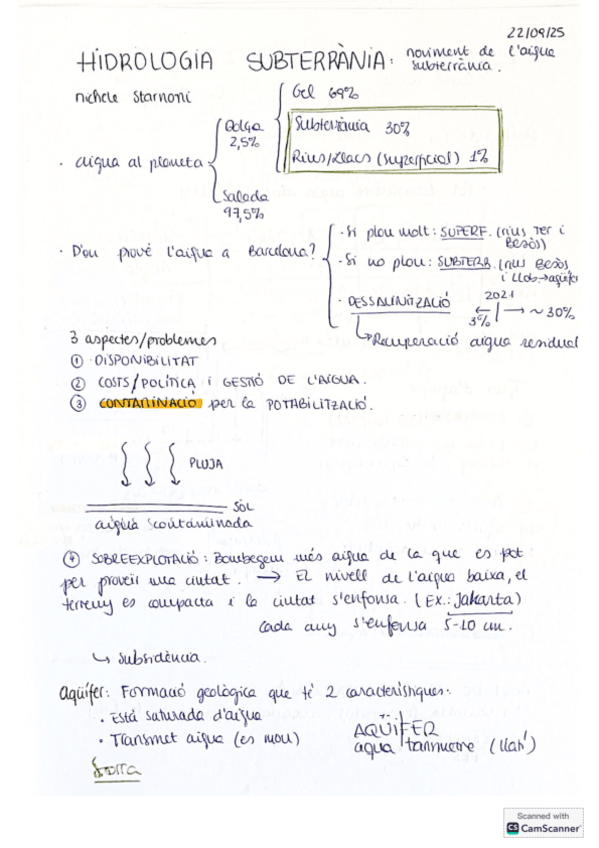 22/09/25
HIDROLOGIA SUBTERRÀNIA: moviment de l'aigua subterrània.
Michele Starnoni
Gel 69%
Dolça 2,5%
Subterrània 30%
· Aigua al planeta
Rius/Llacs (superficial) 1%
Salada 97,5%
· D'on prové l'aigua a Barcelona?
· Si plou molt: SUPERF. (rius Ter i Besòs)
· Si no plou: SUBTERR. (rius Besòs i Llob.→aqüífer
· DESSALINITZACIÓ
2021
3% ← | → ~30%
↳ Recuperació aigua residual
3 aspectes/problemes
① DISPONIBILITAT
② COSTS/POLÍTICA i GESTIÓ DE L'AIGUA.
③ CONTAMINACIÓ per la POTABILITZACIÓ.
PLUJA
SÒL
aigua contaminada
④ SOBREEXPLOTACIÓ: Bombegem més aigua de la que es pot
per proveir una ciutat. → El nivell de l'aigua baixa, el
terreny es compacta i la ciutat s'enfonsa. (Ex.: Jakarta)
Cada any s'enfonsa 5-10 cm.
↳ Subsidència.
Aqüífer: Formació geològica que té 2 característiques:
· Està saturada d'aigua
· Transmet aigua (es mou)
AQÜÍFER
aqua transmetre (llatí)
Sorra
Scanned with
CS CamScanner